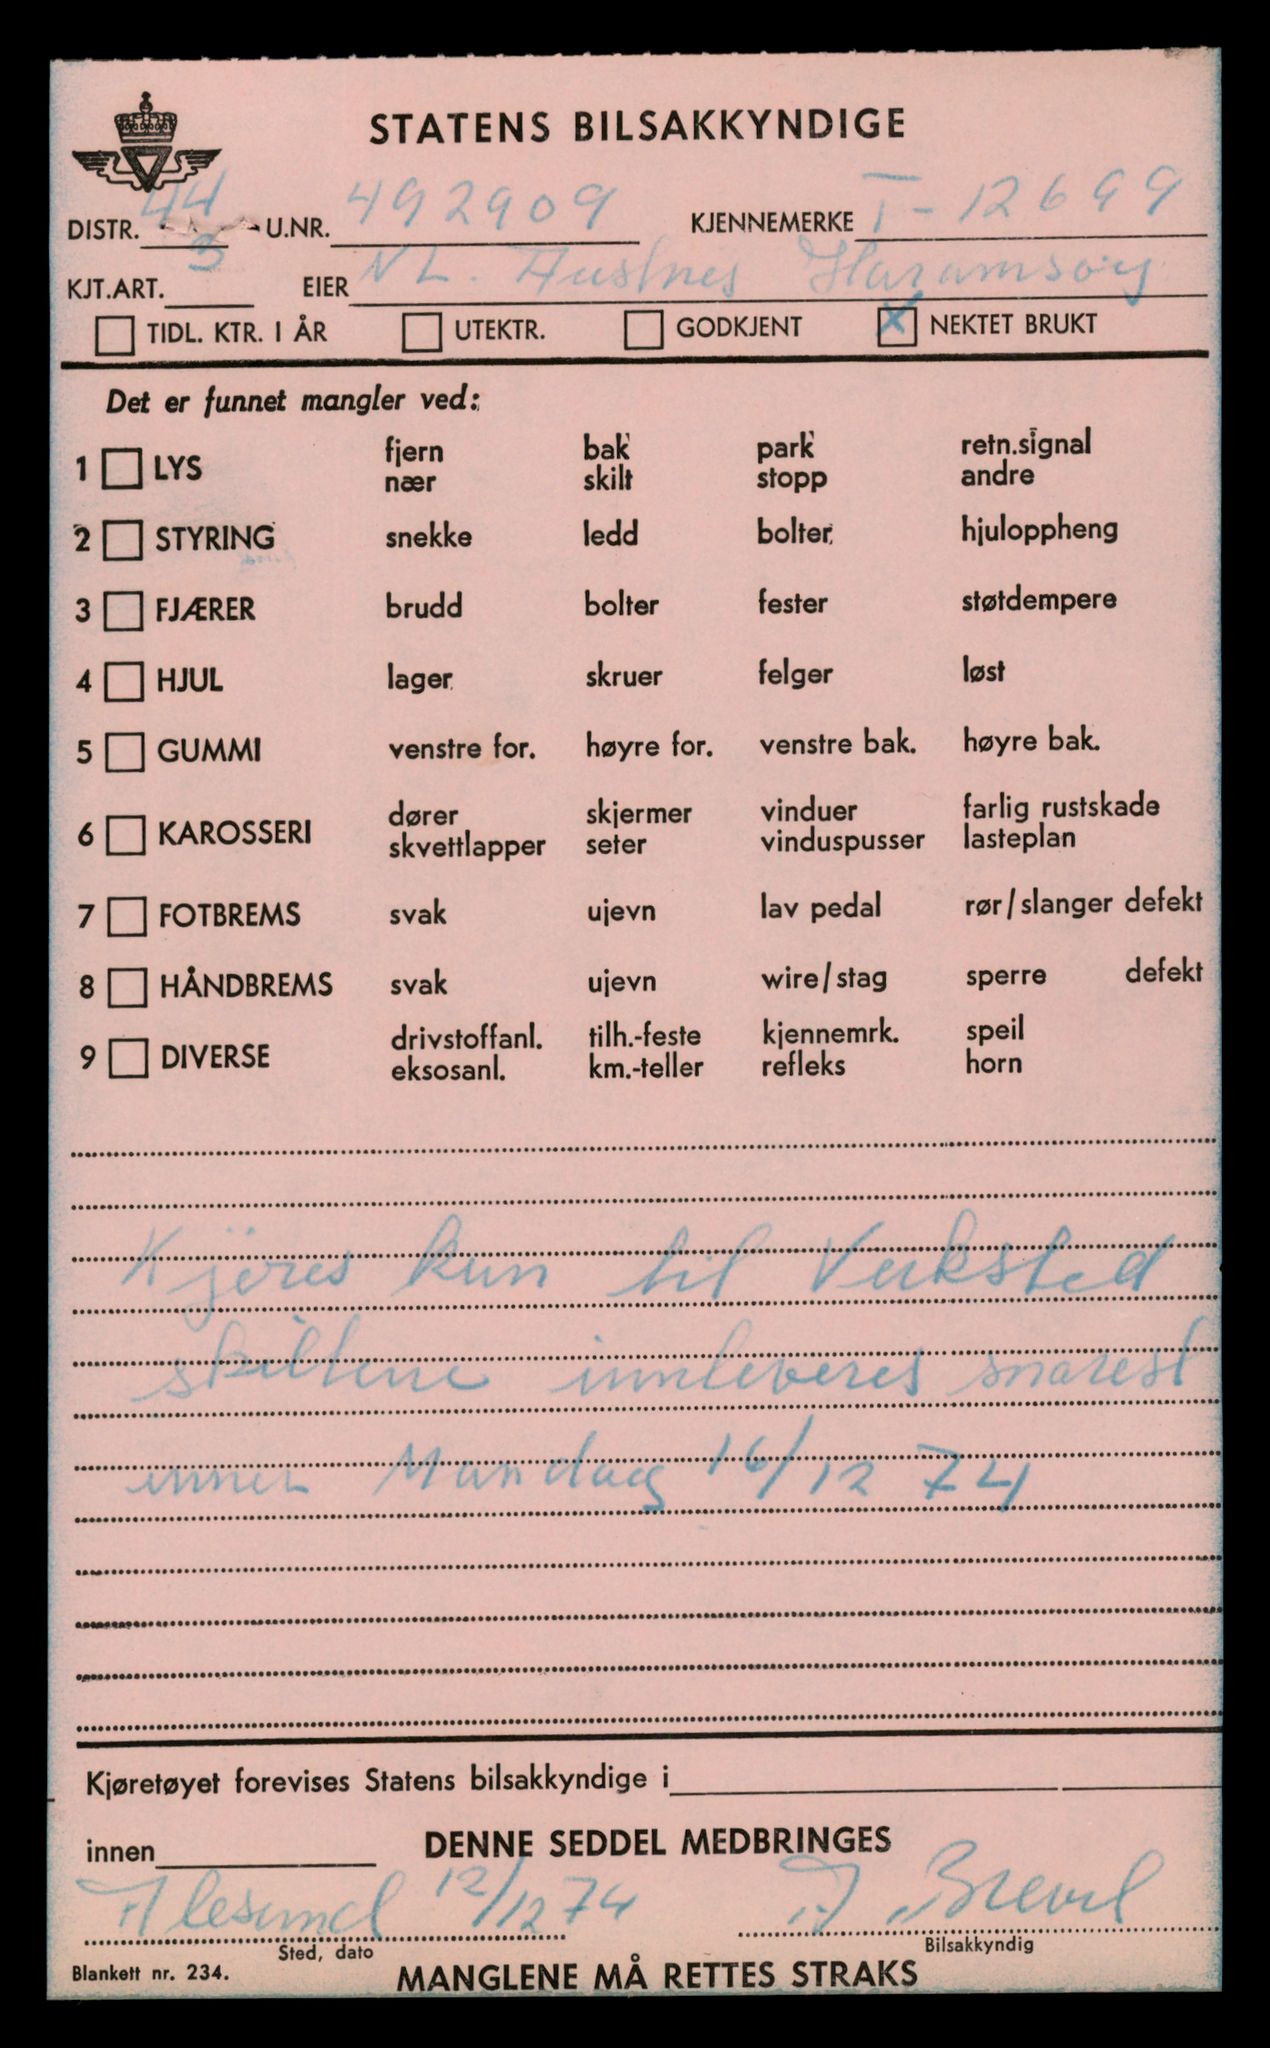 STATENS BILSAKKYNDIGE
DISTR. 44 U.NR. 492909 KJENNEMERKE T-12699
KJT.ART. 3 EIER NL. Austnes Haramsøy
TIDL. KTR. I ÅR UTEKTR. GODKJENT X NEKTET BRUKT
Det er funnet mangler ved:
1 LYS fjern bak park retn.signal
nær skilt stopp andre
2 STYRING snekke ledd bolter hjuloppheng
3 FJÆRER brudd bolter fester støtdempere
4 HJUL lager skruer felger løst
5 GUMMI venstre for. høyre for. venstre bak. høyre bak.
6 KAROSSERI dører skjermer vinduer farlig rustskade
skvettlapper seter vinduspusser lasteplan
7 FOTBREMS svak ujevn lav pedal rør/slanger defekt
8 HÅNDBREMS svak ujevn wire/stag sperre defekt
9 DIVERSE drivstoffanl. tilh.-feste kjennemrk. speil
eksosanl. km.-teller refleks horn
Kjøres kun til Verksted
skiltene innleveres snarest
innen Mandag 16/12 74
Kjøretøyet forevises Statens bilsakkyndige i
innen DENNE SEDDEL MEDBRINGES
Ålesund 12/12 74
Sted, dato Bilsakkyndig
Blankett nr. 234. MANGLENE MÅ RETTES STRAKS